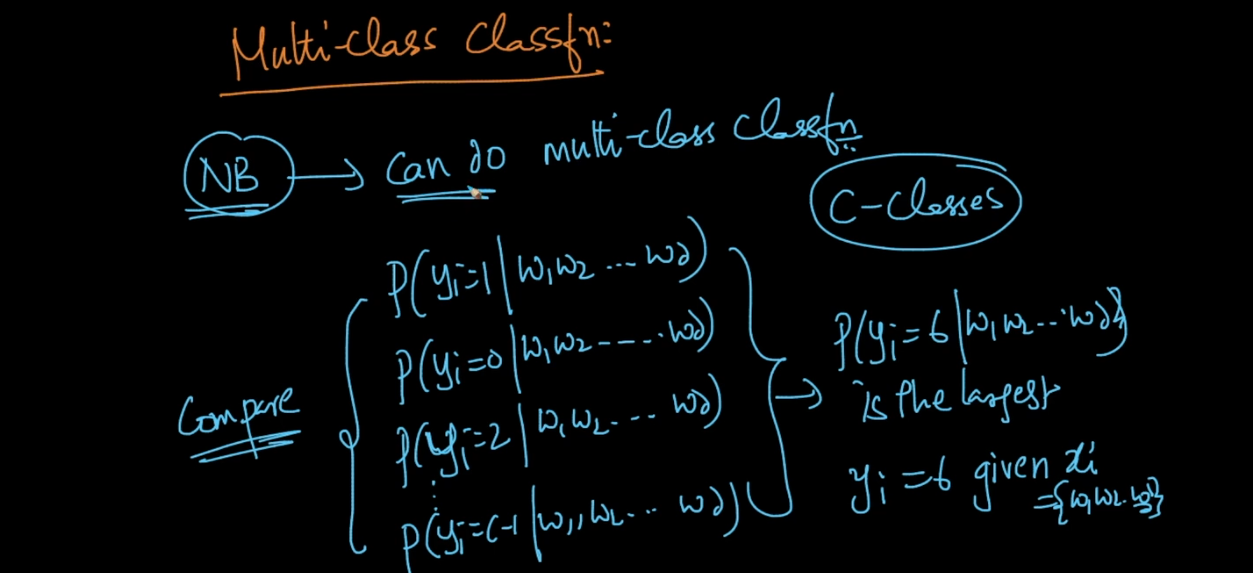 Multi-class Classfn:
NB → Can do multi-class Classfn
C-Classes
Compare
P(yi=1|w1,w2 ... wd)
P(yi=0|w1,w2 ----. wd)
P(yi=2|w1,w2. -.. wd)
⋮
P(yi=C-1|w1,,w2... wd)
→ P(yi=6|w1,w2...wd)
is the largest
yi=6 given xi
={w1,w2..wd}